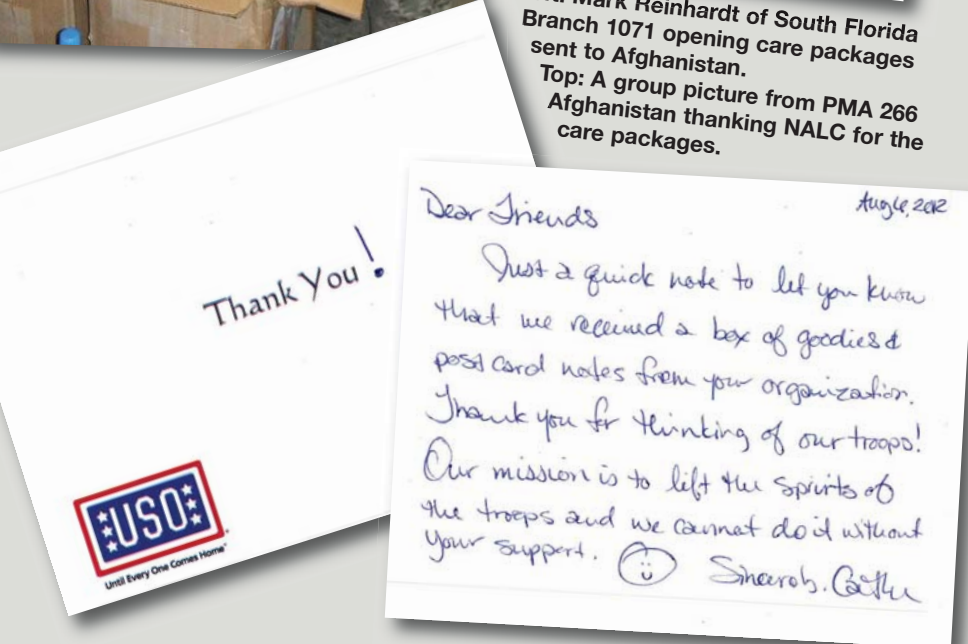 Mark Reinhardt of South Florida
Branch 1071 opening care packages
sent to Afghanistan.
Top: A group picture from PMA 266
Afghanistan thanking NALC for the
care packages.
Thank You!
USO
Until Every One Comes Home
Aug 6, 2012
Dear Friends
Just a quick note to let you know
that we received a box of goodies &
post card notes from your organization.
Thank you for thinking of our troops!
Our mission is to lift the spirits of
the troops and we cannot do it without
your support. Sincerely,